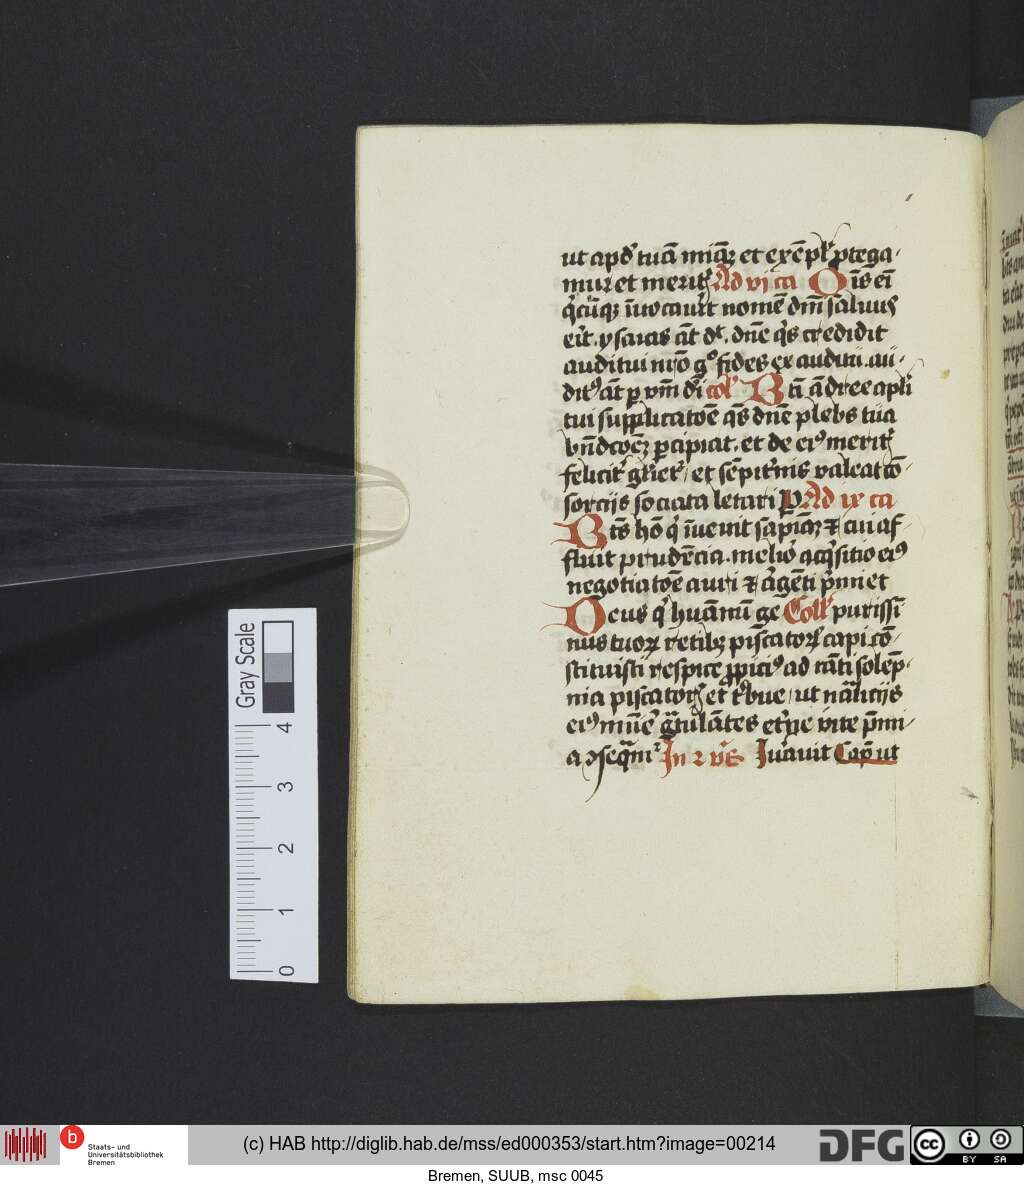 ut apd' tuā mīaꝫ et exēpl' ꝓtega-
mur et merit' Ad vi ca Oīs eī
q'cūqꝫ īuocau'it nomē dn̄i saluus
eit. ysaias āt dt. dn̄e q's credidit
auditui nr̄o g° fides ex auditu. au-
dit' āt ꝑ v'm dī col' Bti ādree apl'i
tui supplicatōe qs dn̄e plebs tua
bn̄dcōeꝫ ꝑcipiat. et de ei' merit'
felicit' gl'iet' et sēpit'nis valeat cō-
sortijs sociata letari P Ad ix ca
Bt's hō q' īuenit sap'iāꝫ ⁊ cui af-
fluit prudēcia. melio' acq'sitio ei'
negotiatōe auri ⁊ a'gēti p'mi et
Deus q' huānū gē Coll' purissī
nus tuoꝝ retibꝫ piscatoꝝ capi cō-
stituisti respice ꝓpici' ad tāti solēp-
nia piscator' et t'bue ut nāliciis
ei' mūe' g'tulātes et'ne vite p'mi-
a ꝯseq̄mr In 2 v's Iurauit Cap ut
Gray Scale
4
3
2
1
0
b Staats- und
Universitätsbibliothek
Bremen
(c) HAB http://diglib.hab.de/mss/ed000353/start.htm?image=00214
DFG
cc BY SA
Bremen, SUUB, msc 0045